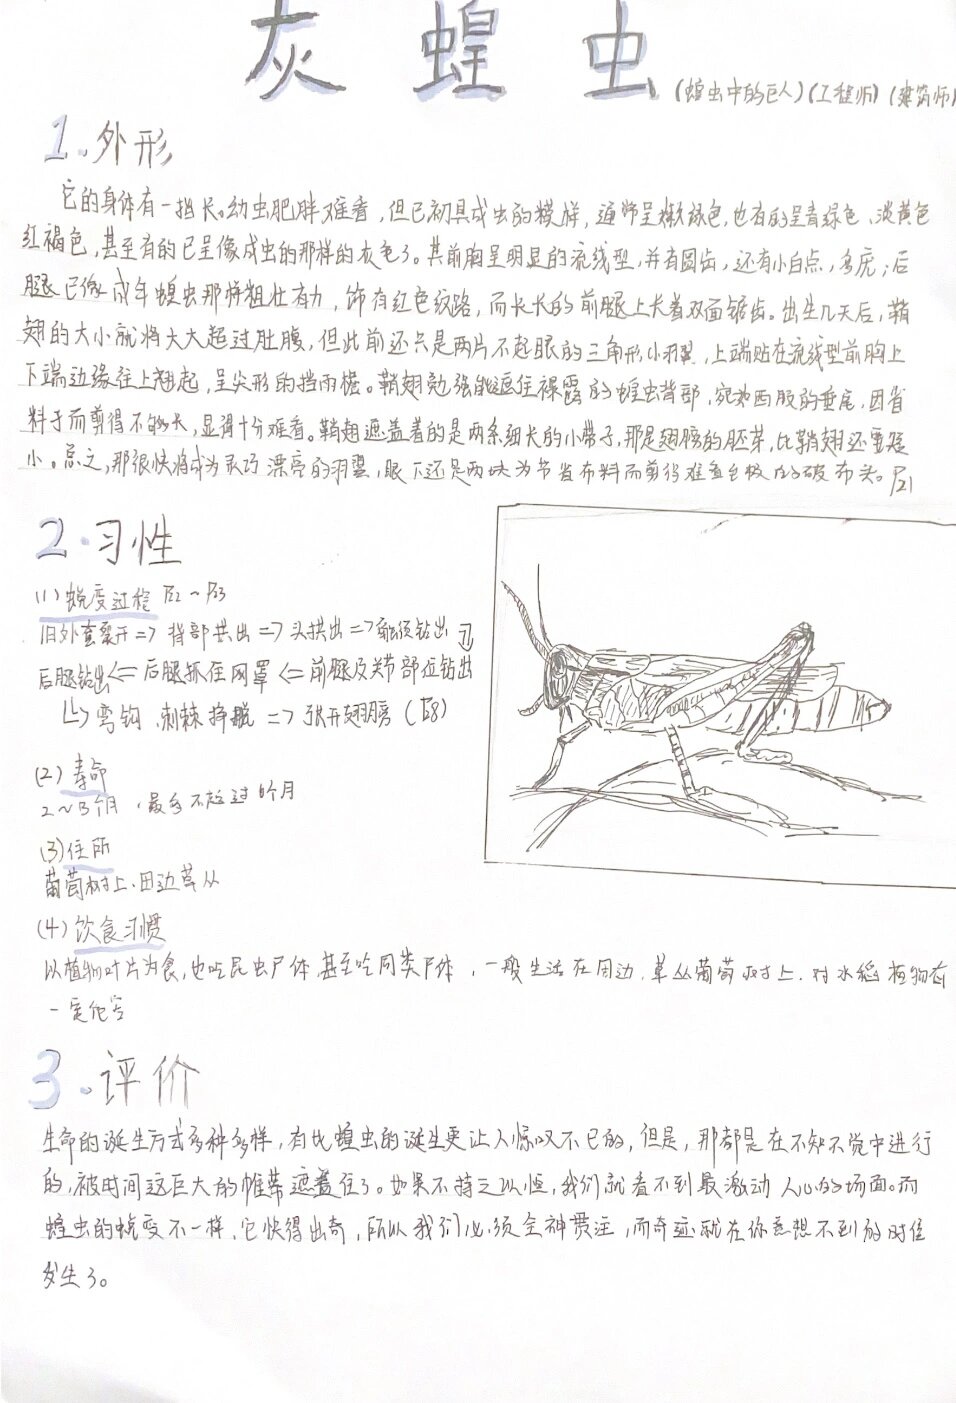 灰蝗虫
(蝗虫中的巨人)(工程师)(建筑师)
1.外形
它的身体有一指长。幼虫肥胖难看,但已初具成虫的模样,通常呈嫩绿色,也有的呈青绿色、淡黄色
红褐色,甚至有的已呈像成虫的那样的灰色了。其前胸呈明显的流线型,并有圆齿,还有小白点,多疣;后
腿已像成年蝗虫那样粗壮有力,饰有红色纹路,而长长的前腿上长着双面锯齿。出生几天后,鞘
翅的大小就将大大超过肚腹,但此前还只是两片不起眼的三角形小羽翼,上端贴在流线型前胸上
下端边缘往上翘起,呈尖形的挡雨檐。鞘翅勉强能遮住裸露的蝗虫背部,宛如西服的垂尾,因省
料子而剪得不够长,显得十分难看。鞘翅遮盖着的是两条细长的小带子,那是翅膀的胚芽,比鞘翅还要短
小。总之,那很快将成为灵巧漂亮的羽翼,眼下还是两块为节省布料而剪得难看至极的破布头。P21
2.习性
(1)蜕变过程 P22~P23
旧外套裂开=>背部拱出=>头拱出=>躯径钻出
后腿钻出<=后腿抓住网罩<=前腿及关节部位钻出
弯钩、刺棘挣脱=>张开翅膀(
(2)寿命
2~3个月,最多不超过6个月
(3)住所
葡萄树上、田边草丛
(4)饮食习惯
以植物叶片为食,也吃昆虫尸体,甚至吃同类尸体,一般生活在田边、草丛葡萄树上,对水稻植物有
一定危害
3.评价
生命的诞生方式多种多样,有比蝗虫的诞生更让人惊叹不已的,但是,那都是在不知不觉中进行
的,被时间这巨大的帷幕遮盖住了。如果不持之以恒,我们就看不到最激动人心的场面。而
蝗虫的蜕变不一样,它快得出奇,所以我们必须全神贯注,而奇迹就在你意想不到的时候
发生了。